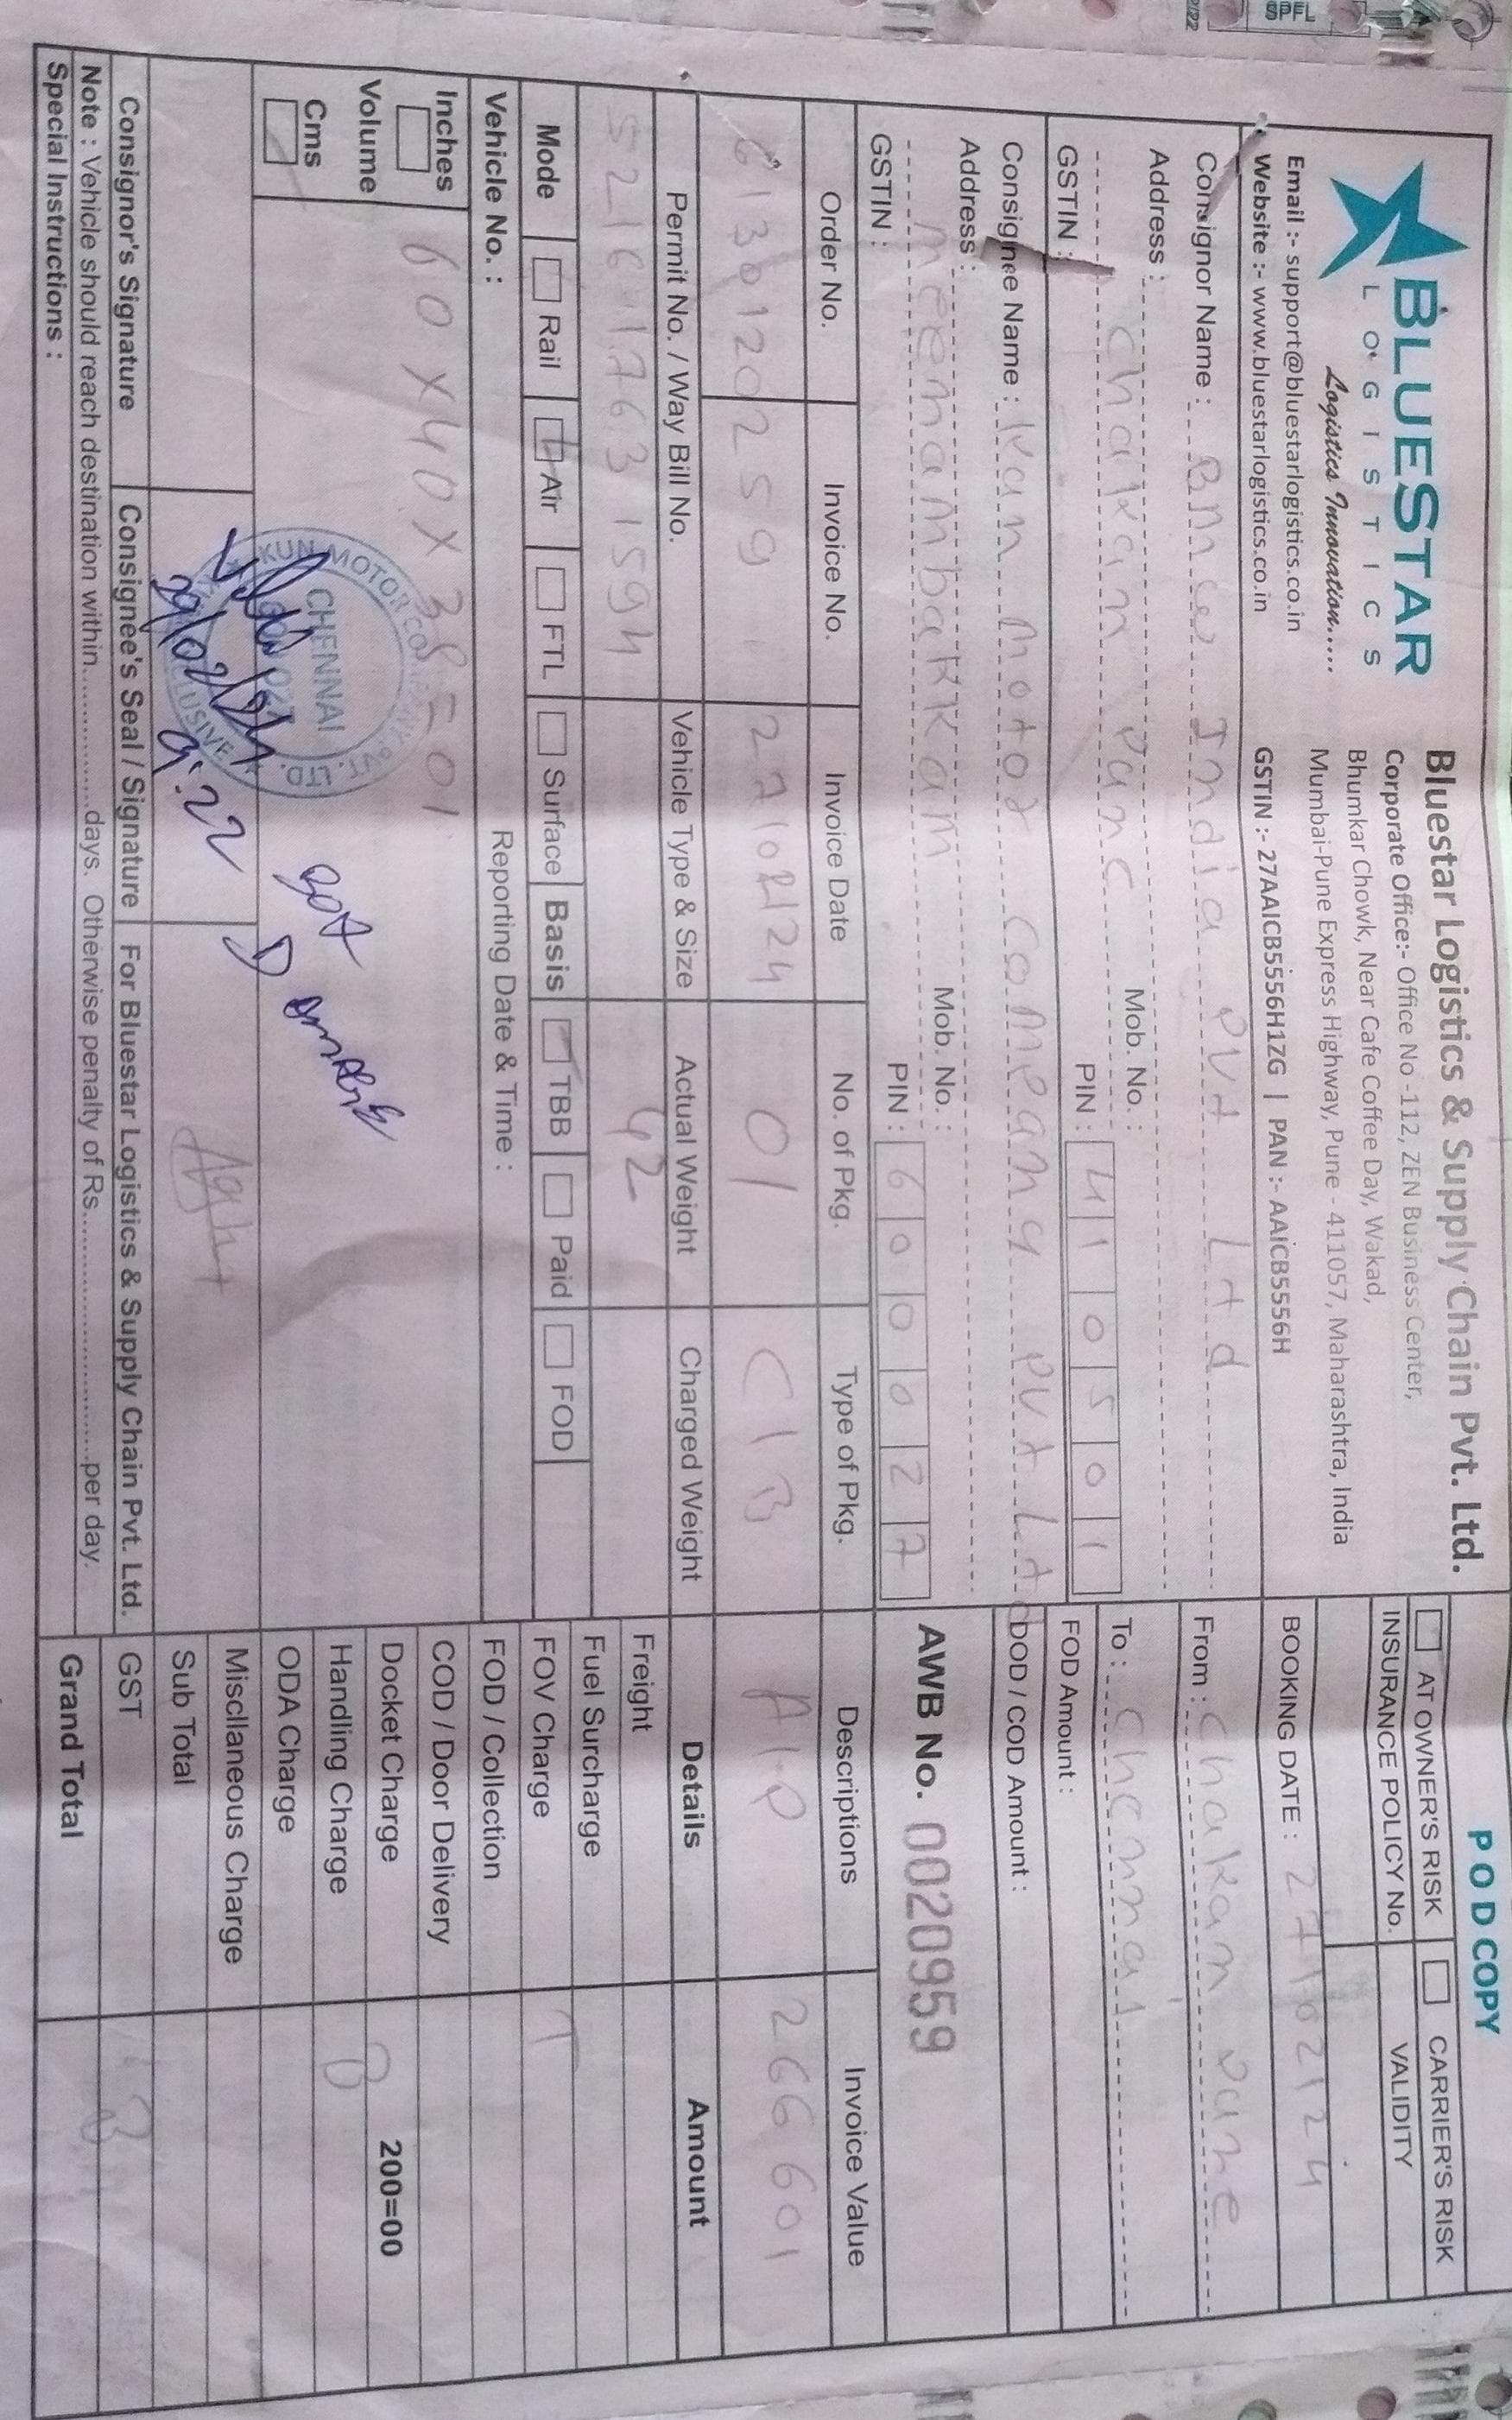 BLUESTAR
LOGISTICS
Logistics Innovation.....
Email :- support@bluestarlogistics.co.in
Website :- www.bluestarlogistics.co.in
Bluestar Logistics & Supply Chain Pvt. Ltd.
Corporate Office:- Office No -112, ZEN Business Center,
Bhumkar Chowk, Near Cafe Coffee Day, Wakad,
Mumbai-Pune Express Highway, Pune - 411057, Maharashtra, India
GSTIN :- 27AAICB5556H1ZG | PAN :- AAICB5556H
POD COPY
AT OWNER'S RISK CARRIER'S RISK
INSURANCE POLICY No. VALIDITY
BOOKING DATE : 27/02/24
SPFL
Consignor Name : BMW India Pvt Ltd
Address :
Chakan Pune
Mob. No. :
PIN : 410501
GSTIN :
From : Chakan Pune
To : Chennai
FOD Amount :
Consignee Name : Kun Motor Company Pvt Ltd
DOD / COD Amount :
Address :
meenambakkam
Mob. No. :
PIN : 600027
GSTIN :
AWB No. 0020959
Order No. Invoice No. Invoice Date No. of Pkg. Type of Pkg. Descriptions Invoice Value
6130120259 27/02/24 01 C/B A/P 266601
Permit No. / Way Bill No. Vehicle Type & Size Actual Weight Charged Weight Details Amount
5216 1763 1594 42
Freight
Fuel Surcharge
Mode Rail Air FTL Surface Basis TBB Paid FOD
FOV Charge T
Vehicle No. : Reporting Date & Time :
FOD / Collection
Inches
60 X 40 X 38 = 01
Volume
Cms
COD / Door Delivery
Docket Charge 200=00
Handling Charge B
ODA Charge
Miscllaneous Charge
Sub Total
GST B
Grand Total
KUN MOTOR COMPANY PVT. LTD.
CHENNAI
600 027
29/02/24
9:22
BOX
DAMAGE
Consignor's Signature Consignee's Seal / Signature For Bluestar Logistics & Supply Chain Pvt. Ltd.
Note : Vehicle should reach destination within.................days. Otherwise penalty of Rs..............................per day.
Special Instructions :